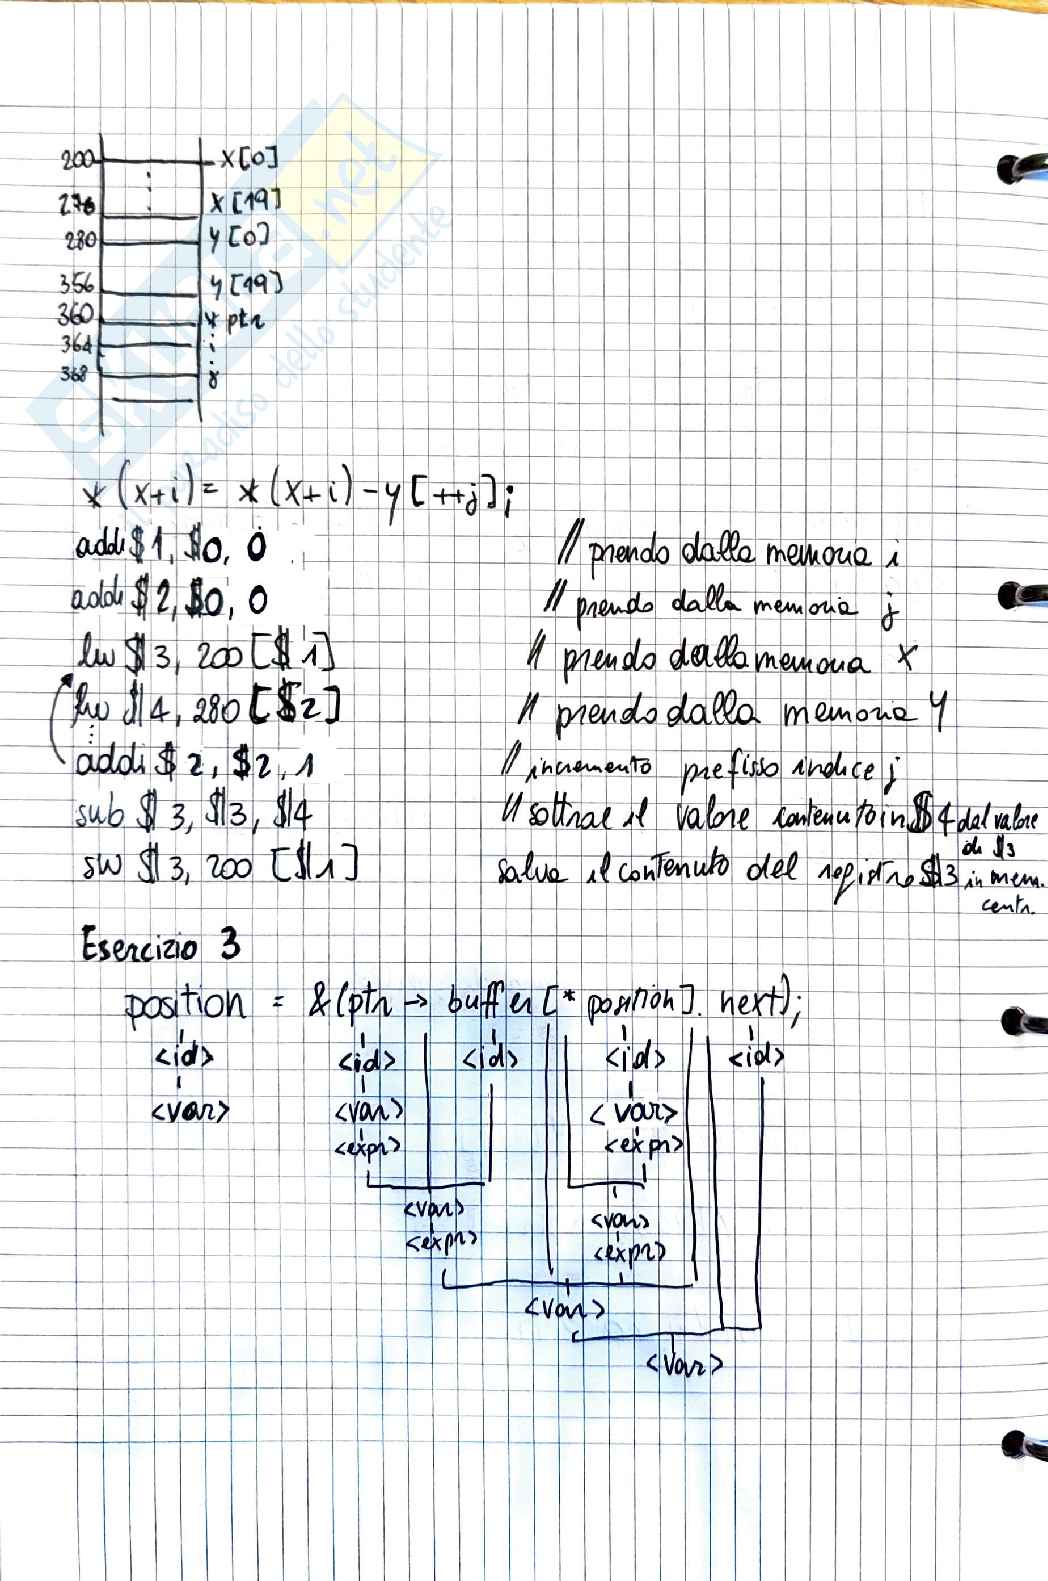 200 x[0]
276 x[19]
280 y[0]
356 y[19]
360 * ptr
364 i
368 j
*(x+i) = *(x+i) - y[++j];
addi $1, $0, 0 // prendo dalla memoria i
addi $2, $0, 0 // prendo dalla memoria j
lw $3, 200[$1] // prendo dalla memoria x
lw $4, 280[$2] // prendo dalla memoria y
addi $2, $2, 1 // incremento prefisso indice j
sub $3, $3, $4 // sottrae il valore contenuto in $4 dal valore
di $3
sw $3, 200[$1] salva il contenuto del registro $3 in mem.
centr.
Esercizio 3
position = &(ptr -> buffer[*position].next);
<id> <id> <id> <id> <id>
<var> <var> <var>
<expr> <expr>
<var> <var>
<expr> <expr>
<var>
<var>
.net
dello studente